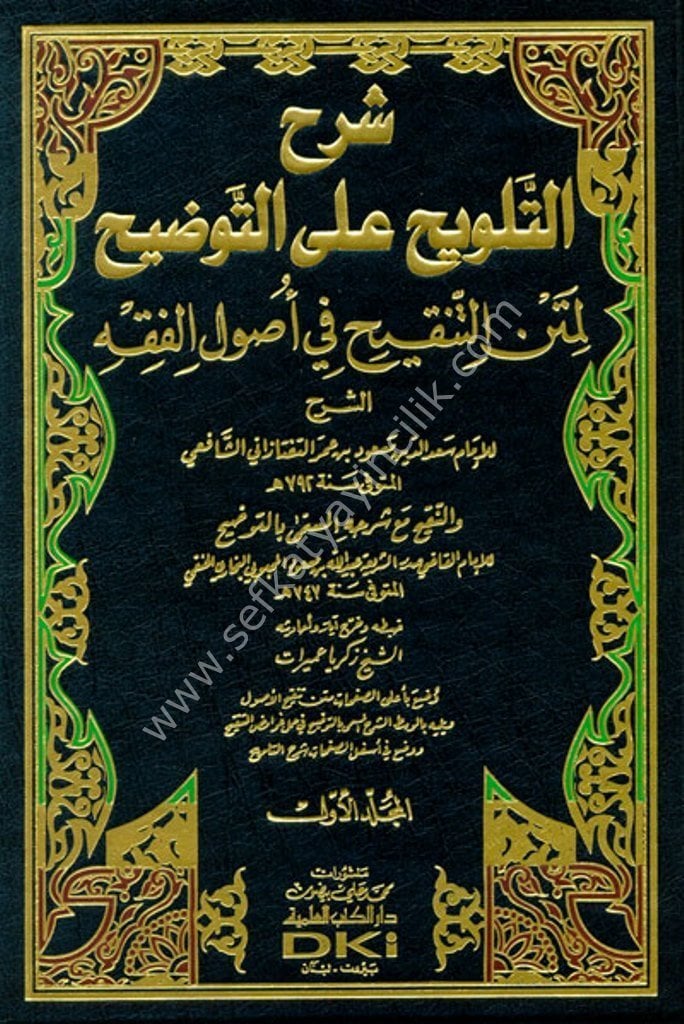 شرح
التَّلويح على التَّوضيح
لِمَتْن التَّنقيح في أُصول الفِقْه
الشرح
للإمام سعد الدين مسعود بن عمر التفتازاني الشَّافعي
المتوفى سنة ٧٩٢ هـ
والتنقيح مع شرحه المسمى بالتوضيح
للإمام القاضي صدر الشريعة عبيد الله بن مسعود المحبوبي البخاري الحنفي
المتوفى سنة ٧٤٧ هـ
ضبطه وخرج آياته وأحاديثه
الشيخ زكريا عميرات
وُضع بأعلى الصفحات متن تنقيح الأصول
ويليه بالوسط الشرح المسمى بالتوضيح في حل غوامض التنقيح
ووضع في أسفل الصفحات شرح التلويح
المجلّد الأوّل
منشورات
محمد علي بيضون
دار الكتب العلمية
DKi
بيروت - لبنان
www.sefkatyayincilik.com